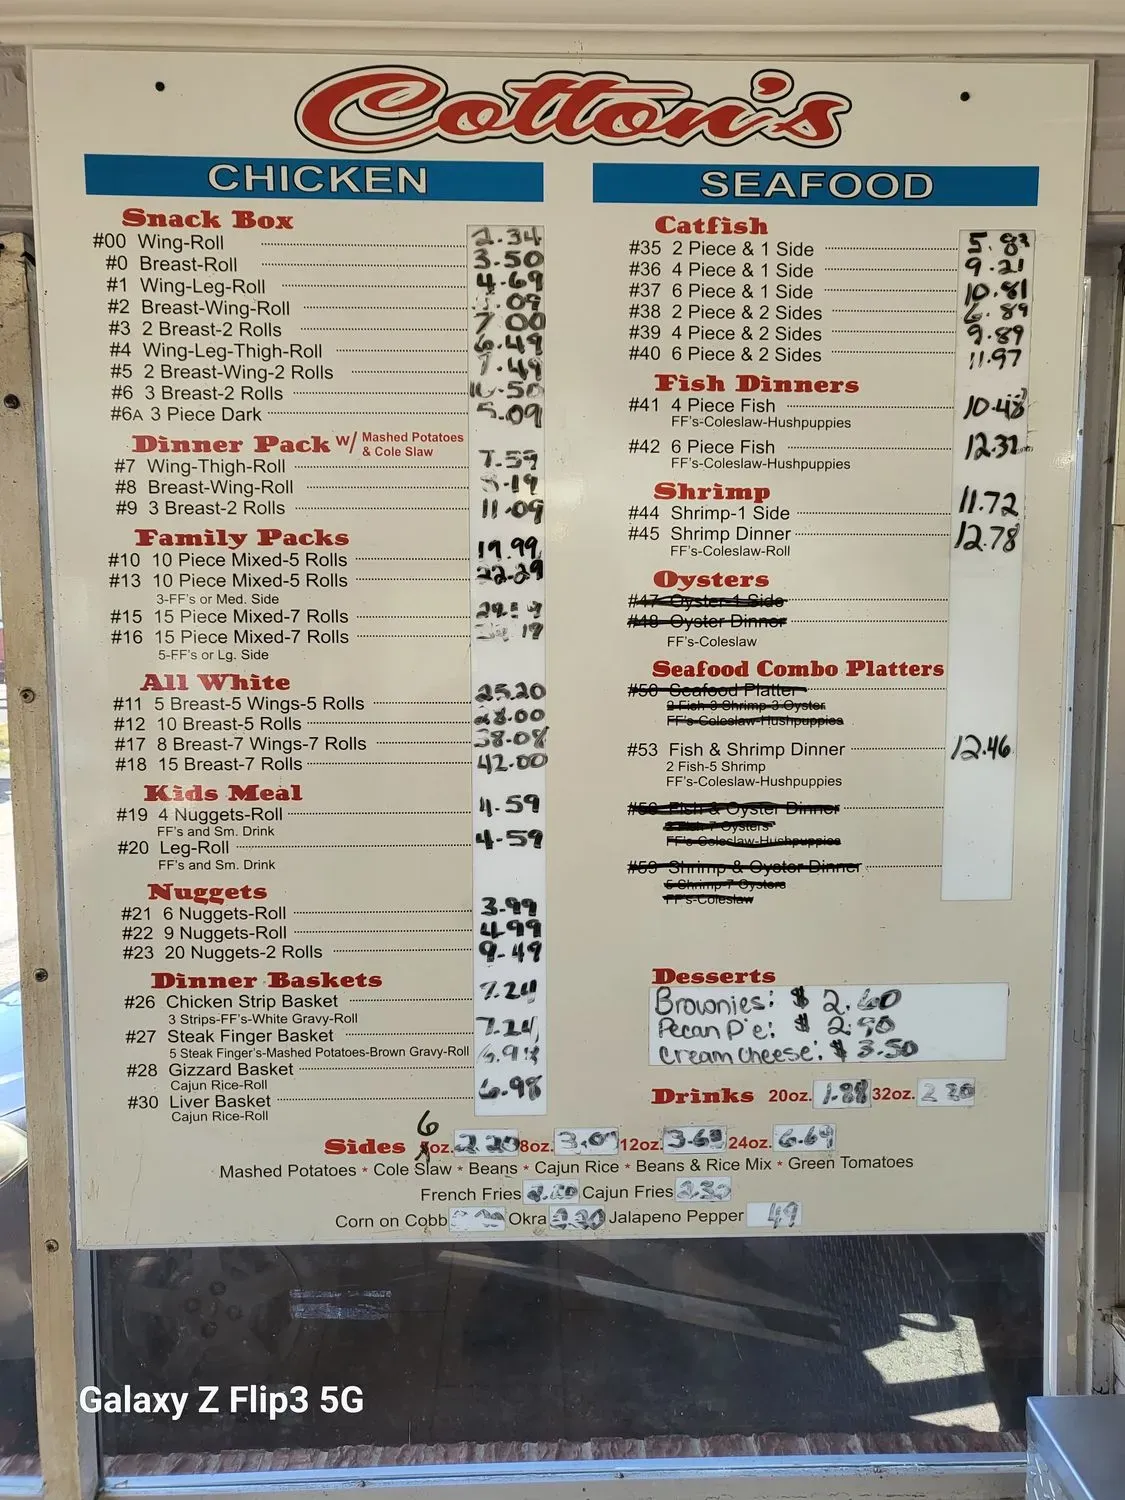 Cotton's
CHICKEN
Snack Box
#00 Wing-Roll 2.34
#0 Breast-Roll 3.50
#1 Wing-Leg-Roll 4.69
#2 Breast-Wing-Roll
#3 2 Breast-2 Rolls 7.00
#4 Wing-Leg-Thigh-Roll 6.49
#5 2 Breast-Wing-2 Rolls 7.49
#6 3 Breast-2 Rolls 10.50
#6A 3 Piece Dark 5.09
Dinner Pack w/ Mashed Potatoes & Cole Slaw
#7 Wing-Thigh-Roll 7.59
#8 Breast-Wing-Roll 8.19
#9 3 Breast-2 Rolls 11.09
Family Packs
#10 10 Piece Mixed-5 Rolls 19.99
#13 10 Piece Mixed-5 Rolls 22.29
3-FF's or Med. Side
#15 15 Piece Mixed-7 Rolls
#16 15 Piece Mixed-7 Rolls
5-FF's or Lg. Side
All White
#11 5 Breast-5 Wings-5 Rolls 25.20
#12 10 Breast-5 Rolls 28.00
#17 8 Breast-7 Wings-7 Rolls 38.08
#18 15 Breast-7 Rolls 42.00
Kids Meal
#19 4 Nuggets-Roll 4.59
FF's and Sm. Drink
#20 Leg-Roll 4.59
FF's and Sm. Drink
Nuggets
#21 6 Nuggets-Roll 3.99
#22 9 Nuggets-Roll 4.99
#23 20 Nuggets-2 Rolls 9.49
Dinner Baskets
#26 Chicken Strip Basket 7.24
3 Strips-FF's-White Gravy-Roll
#27 Steak Finger Basket 7.24
5 Steak Finger's-Mashed Potatoes-Brown Gravy-Roll
#28 Gizzard Basket 6.98
Cajun Rice-Roll
#30 Liver Basket 6.98
Cajun Rice-Roll
SEAFOOD
Catfish
#35 2 Piece & 1 Side 5.83
#36 4 Piece & 1 Side 9.21
#37 6 Piece & 1 Side 10.81
#38 2 Piece & 2 Sides 6.89
#39 4 Piece & 2 Sides 9.89
#40 6 Piece & 2 Sides 11.97
Fish Dinners
#41 4 Piece Fish 10.48
FF's-Coleslaw-Hushpuppies
#42 6 Piece Fish 12.32
FF's-Coleslaw-Hushpuppies
Shrimp
#44 Shrimp-1 Side 11.72
#45 Shrimp Dinner 12.78
FF's-Coleslaw-Roll
Oysters
#47 Oyster-1 Side
#48 Oyster Dinner
FF's-Coleslaw
Seafood Combo Platters
#50 Seafood Platter
2 Fish-3 Shrimp-3 Oyster
FF's-Coleslaw-Hushpuppies
#53 Fish & Shrimp Dinner 12.46
2 Fish-5 Shrimp
FF's-Coleslaw-Hushpuppies
Fish & Oyster Dinner
FF's-Coleslaw-Hushpuppies
#59 Shrimp & Oyster Dinner
5 Shrimp-7 Oysters
FF's-Coleslaw
Desserts
Brownies: $ 2.60
Pecan Pie: $ 2.90
Cream cheese: $ 3.50
Drinks 20oz. 1.88 32oz.
Sides 6 oz. 2.20 8oz. 12oz. 3.68 24oz. 6.69
Mashed Potatoes * Cole Slaw * Beans * Cajun Rice * Beans & Rice Mix * Green Tomatoes
French Fries Cajun Fries
Corn on Cobb Okra Jalapeno Pepper 49
Galaxy Z Flip3 5G